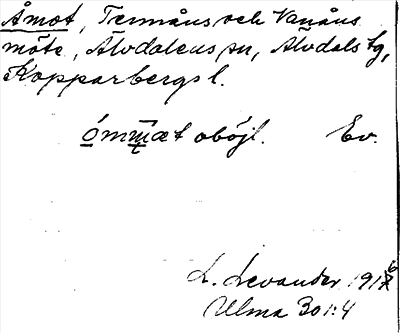 Åmot, Tennåns och Vanåns
möte, Älvdalens sn, Älvdals tg,
Kopparbergs l.
ómmæt oböjl. Ev.
L. Levander 1916
Ulma 301:4